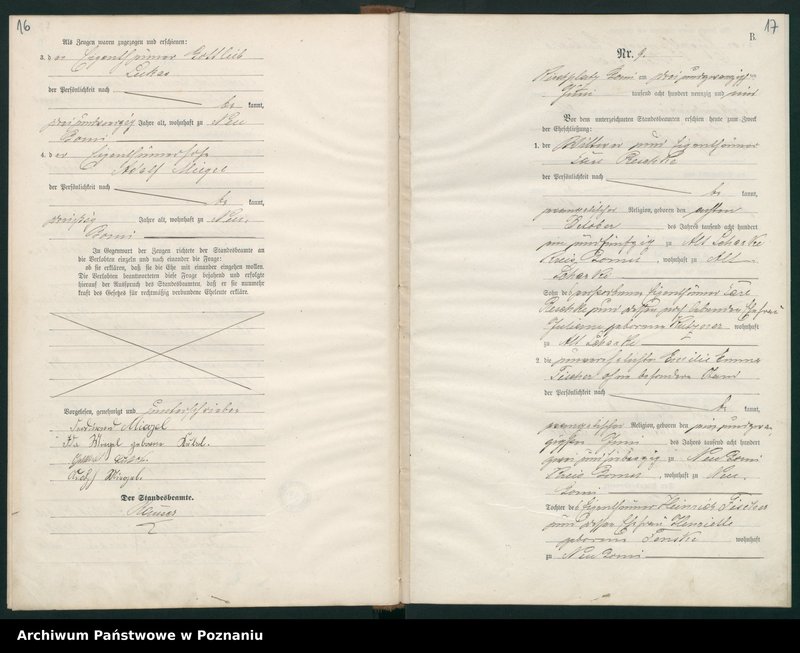 16
Als Zeugen waren zugezogen und erschienen:
3. der Eigenthümer Gottlieb
Lukas
der Persönlichkeit nach
be kannt,
Jahre alt, wohnhaft zu Neu
Bomi
4. der Eigenthümersohn
Adolf Miegel
der Persönlichkeit nach
be kannt,
dreißig Jahre alt, wohnhaft zu Neu
Bomi
In Gegenwart der Zeugen richtete der Standesbeamte an
die Verlobten einzeln und nach einander die Frage:
ob sie erklären, daß sie die Ehe mit einander eingehen wollen.
Die Verlobten beantworteten diese Frage bejahend und erfolgte
hierauf der Ausspruch des Standesbeamten, daß er sie nunmehr
kraft des Gesetzes für rechtmäßig verbundene Eheleute erkläre.
Vorgelesen, genehmigt und unterschrieben
Ferdinand Miegel
Miegel geborene
Adolf Miegel.
Der Standesbeamte.
17
B.
Nr. 9.
Kirchplatz Bomi am dreiundzwanzigsten
Juni tausend acht hundert neunzig und
Vor dem unterzeichneten Standesbeamten erschien heute zum Zweck
der Eheschließung:
1. der Wittwer und Eigenthümer
Reschke
der Persönlichkeit nach
be kannt,
evangelischer Religion, geboren den
Oktober des Jahres tausend acht hundert
ein und fünfzig zu Alt Scharke
Kreis Bomst, wohnhaft zu Alt
Scharke
Sohn des verstorbenen Eigenthümer
Reschke und dessen noch lebenden Ehefrau
geborene wohnhaft
zu Alt Scharke
2. die unverehelichte Emilie Emma
Fischer ohne besonderen Stand
der Persönlichkeit nach
be kannt,
evangelischer Religion, geboren den ein und zwan-
zigsten Juni des Jahres tausend acht hundert
zu Neu Bomi
Kreis Bomst, wohnhaft zu Neu
Bomi
Tochter des Eigenthümer Heinrich Fischer
und dessen Ehefrau Henriette
geborene Jenske wohnhaft
zu Neu Bomi
Archiwum Państwowe w Poznaniu